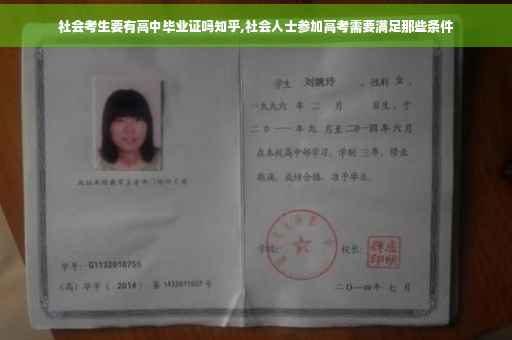 社会考生要有高中毕业证吗知乎,社会人士参加高考需要满足那些条件
学生 刘婉玲 ，性别 女 ，
一九九六 年 二 月 日生，于
二０一一年 九 月至 二０一四年 六 月
在本校高中部学习，学制 三年，修业
期满，成绩合格，准予毕业。
学号： G1132010755
学校： 校长：
(高) 毕字 ( 2014 ) 第 1432011027 号
二０一四年 七 月